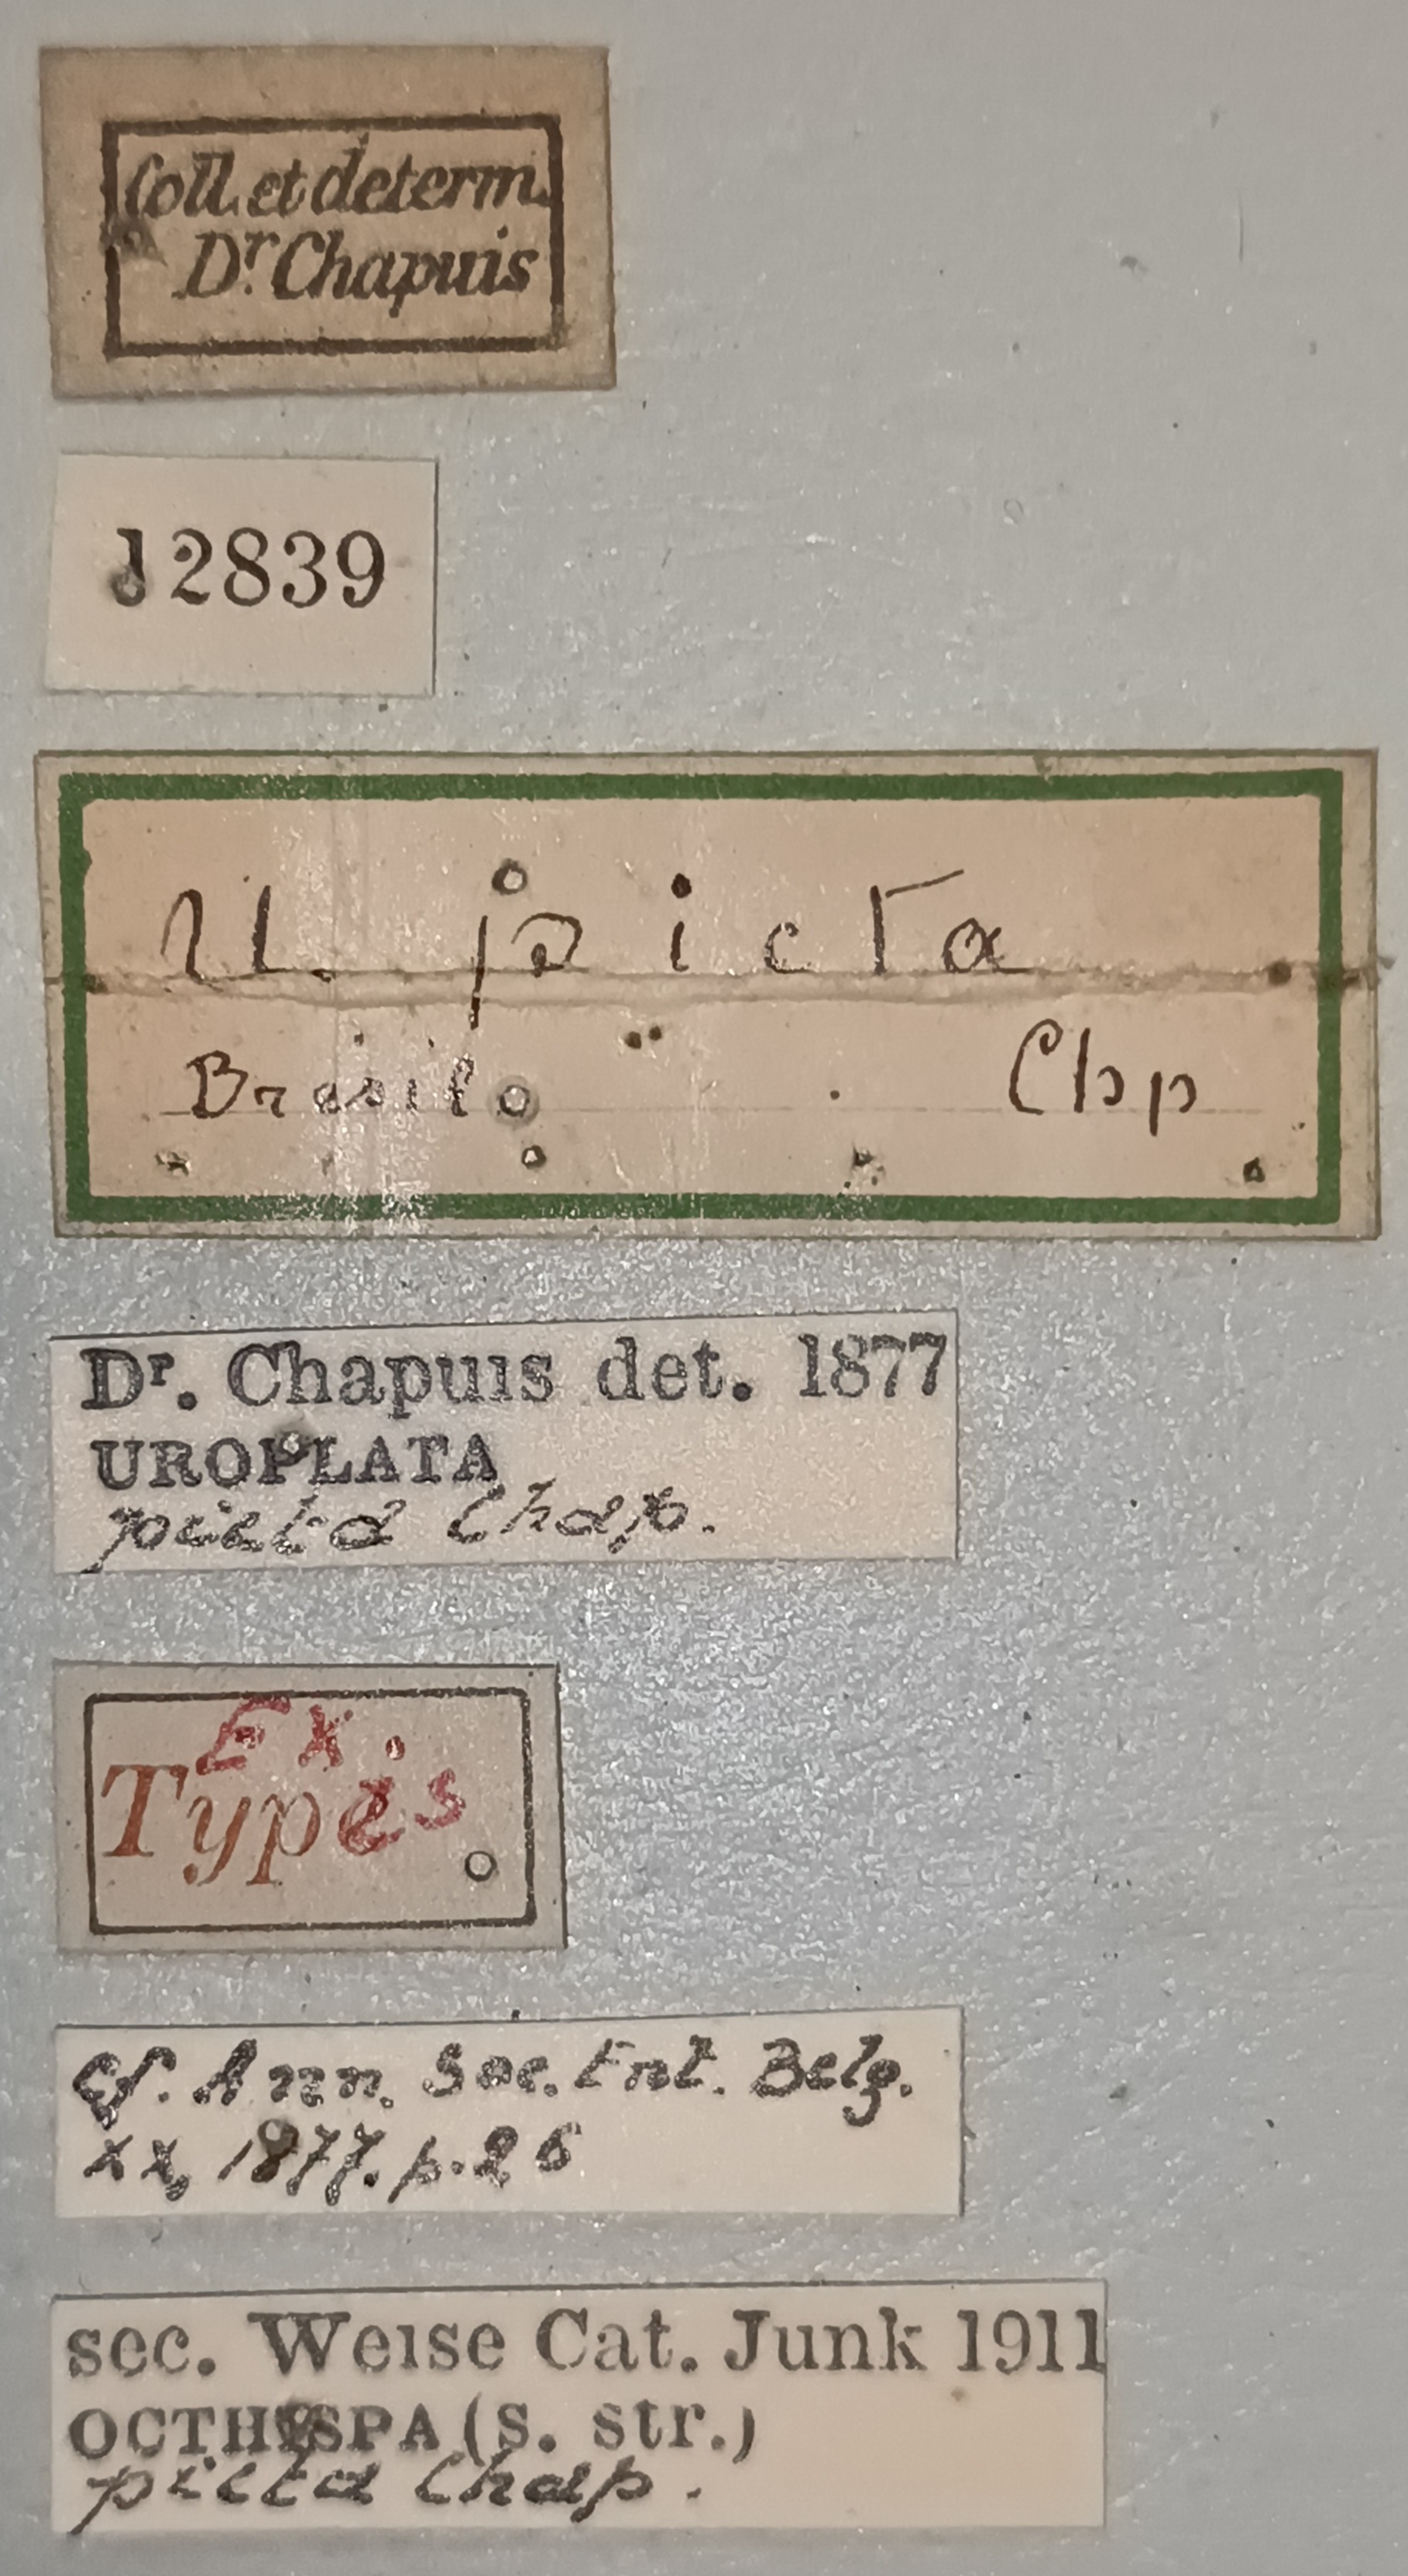 Coll. et determ.
Dr. Chapuis
12839
U. picta
Brésil Chp
Dr. Chapuis det. 1877
UROPLATA
picta Chap.
Ex
Typis
cf. Ann. Soc. Ent. Belg.
XX, 1877. p. 26
sec. Weise Cat. Junk 1911
OCTHISPA (S. str.)
picta Chap.